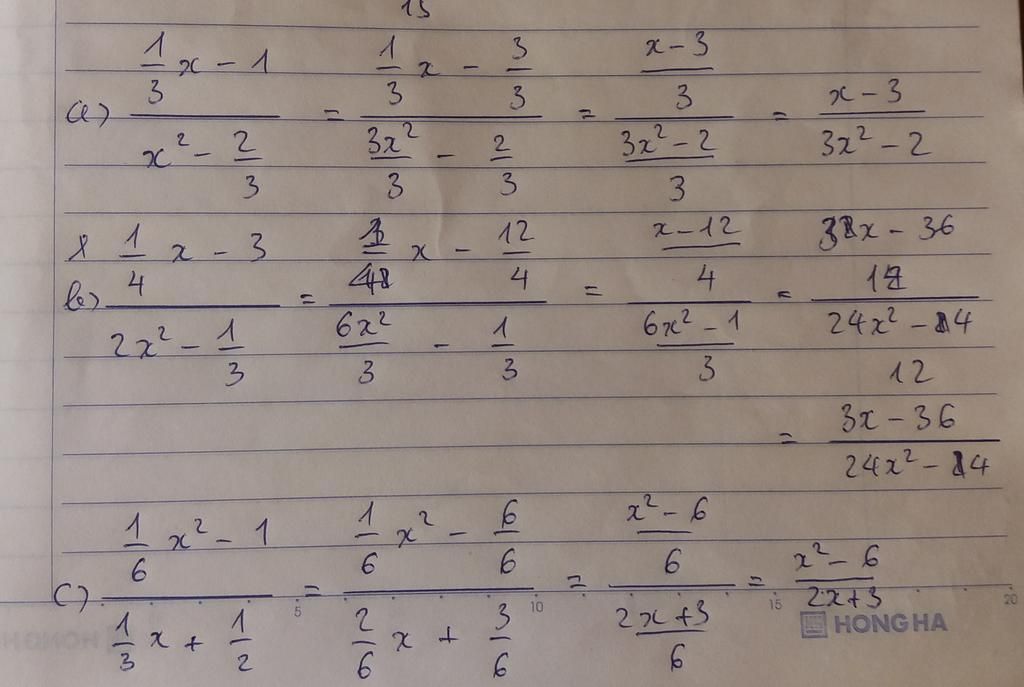 13
a) (1/3 x - 1)/(x² - 2/3) = (1/3 x - 3/3)/(3x²/3 - 2/3) = ((x - 3)/3)/((3x² - 2)/3) = (x - 3)/(3x² - 2)
b) (1/4 x - 3)/(2x² - 1/3) = (1/4 x - 12/4)/(6x²/3 - 1/3) = ((x - 12)/4)/((6x² - 1)/3) = ((3x - 36)/12)/((24x² - 4)/12)
= (3x - 36)/(24x² - 4)
c) (1/6 x² - 1)/(1/3 x + 1/2) = (1/6 x² - 6/6)/(2/6 x + 3/6) = ((x² - 6)/6)/((2x + 3)/6) = (x² - 6)/(2x + 3)
5 10 15 20
HONG HA